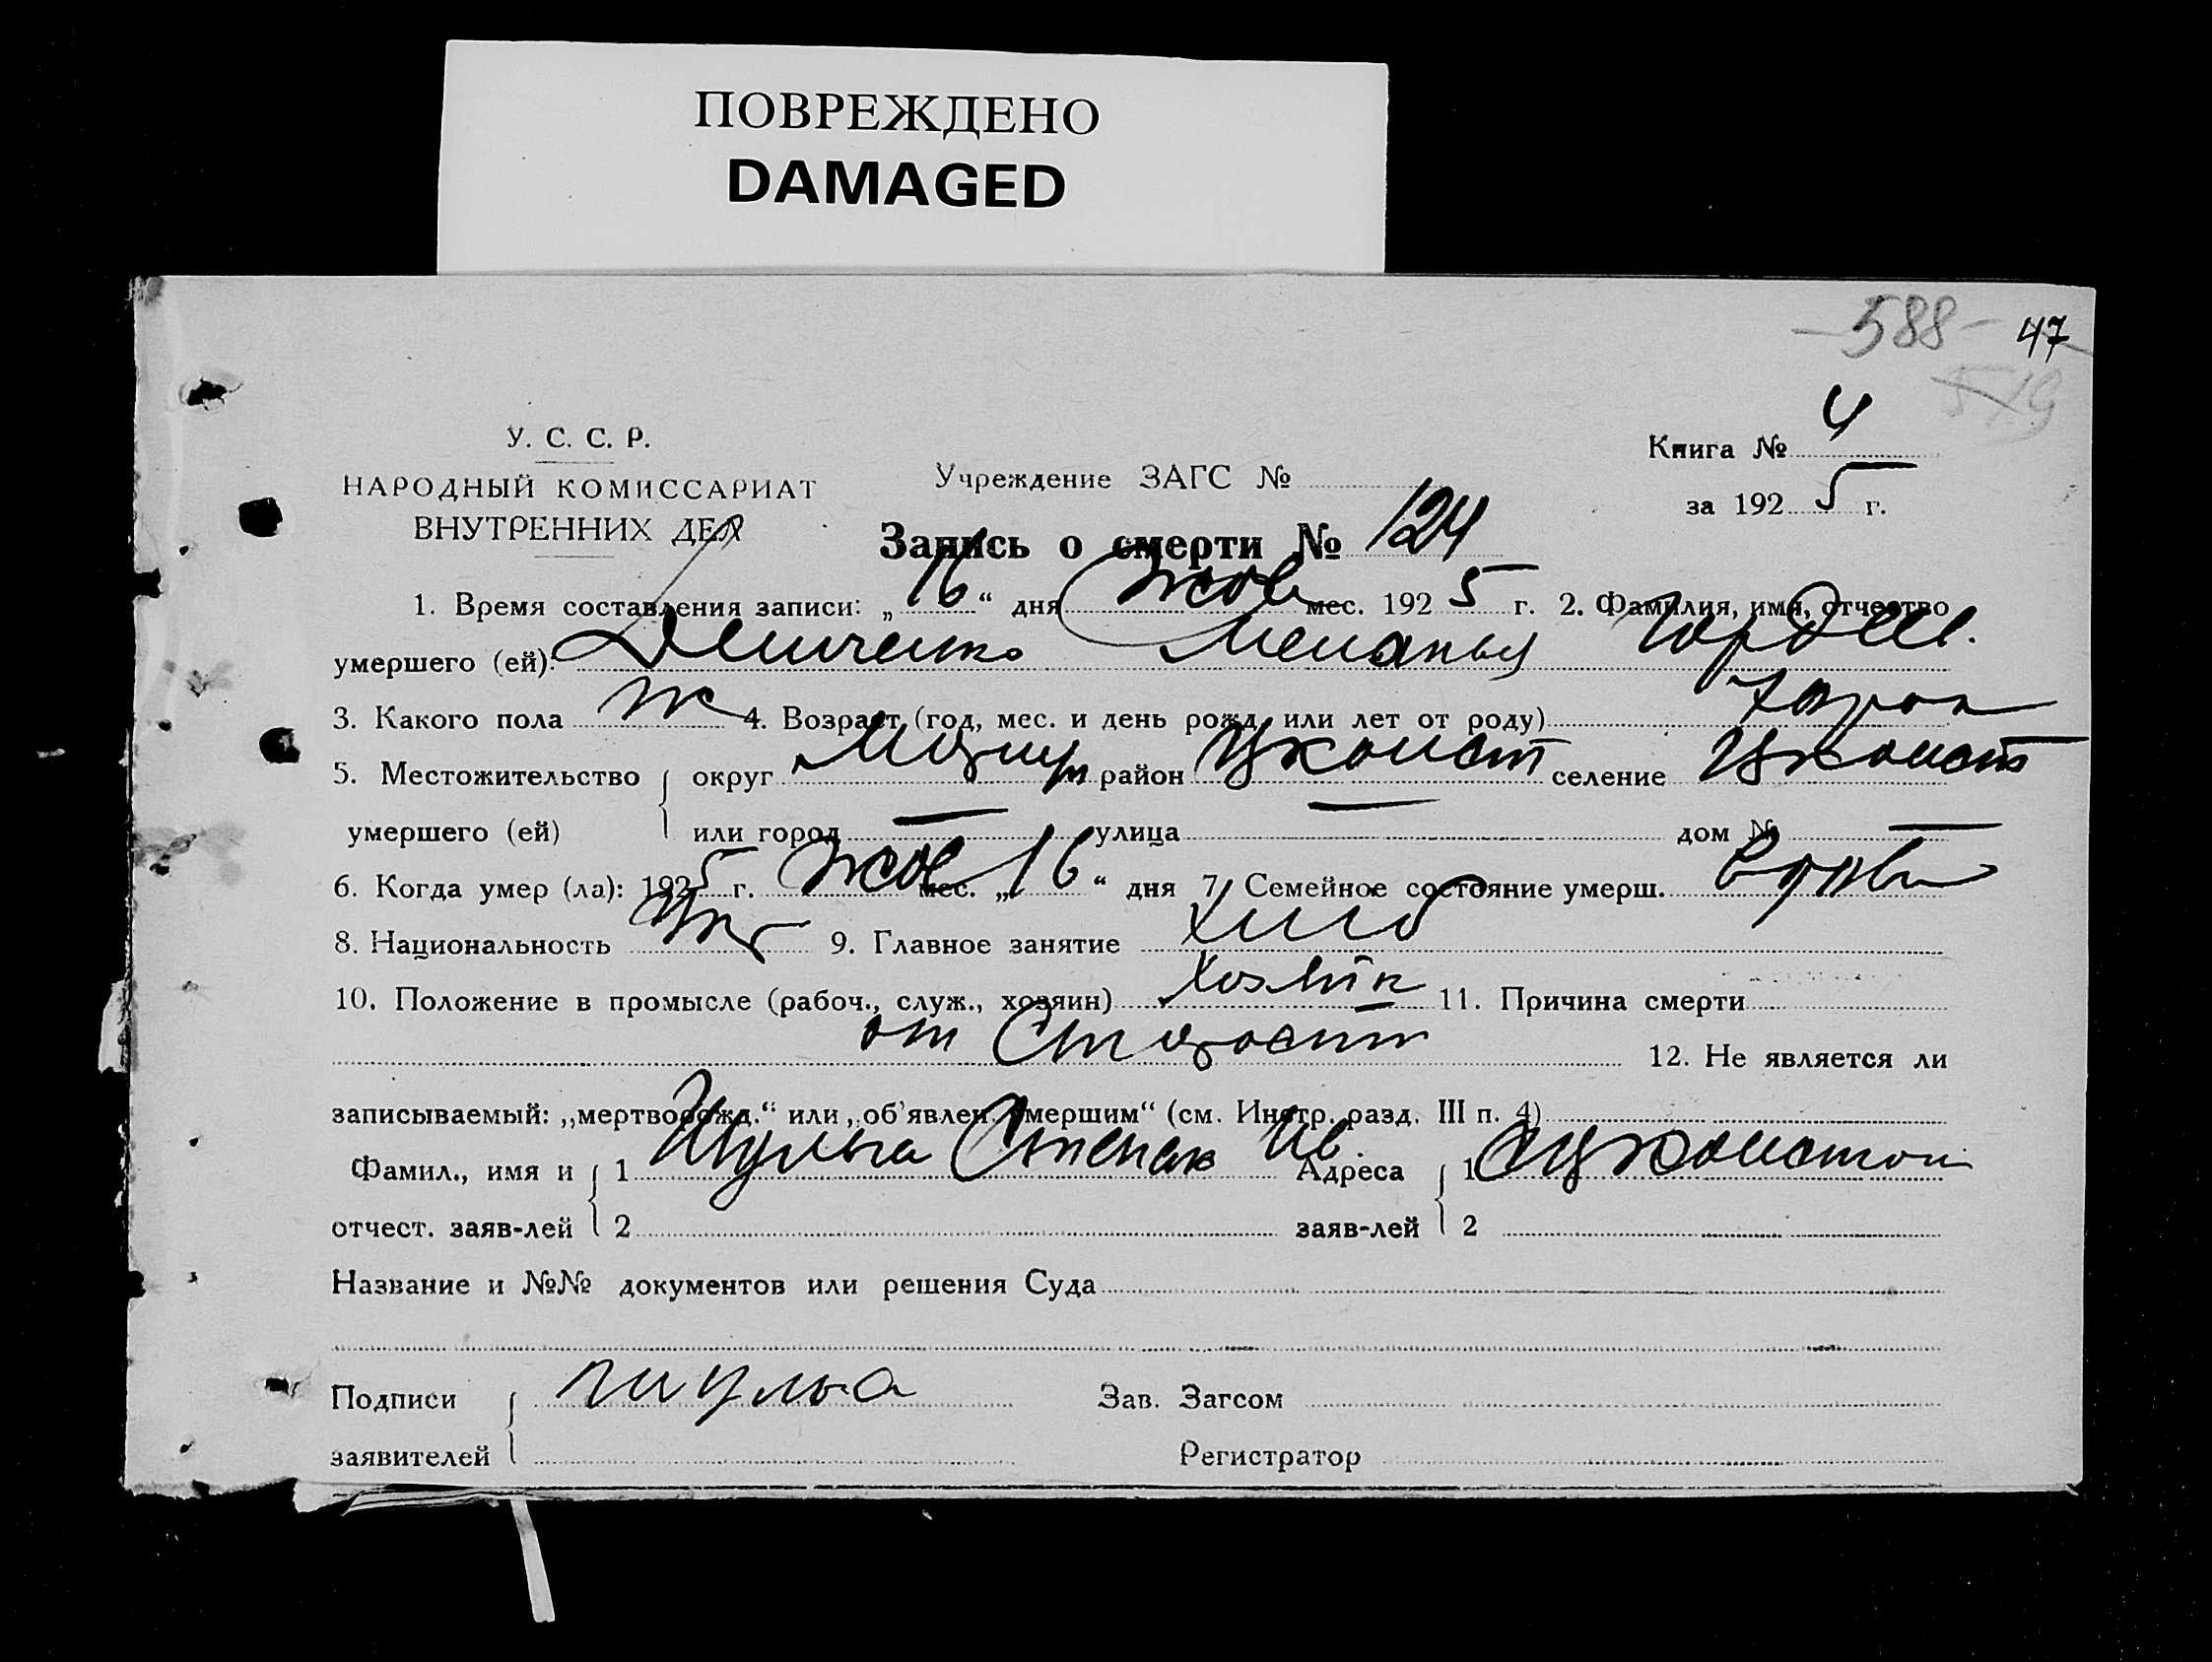 ПОВРЕЖДЕНО
DAMAGED
-588- 47
519
У. С. С. Р.
НАРОДНЫЙ КОМИССАРИАТ
ВНУТРЕННИХ ДЕЛ
Учреждение ЗАГС №
Книга № 4
за 1925 г.
Запись о смерти № 124
1. Время составления записи: „16“ дня Жов мес. 1925 г. 2. Фамилия, имя, отчество
умершего (ей): Меланья Горд
3. Какого пола ж 4. Возраст (год, мес. и день рожд. или лет от роду)
5. Местожительство { округ район селение
умершего (ей) или город — улица — дом № —
6. Когда умер (ла): 1925 г. Жов мес. „16“ дня 7. Семейное состояние умерш. вдова
8. Национальность Укр 9. Главное занятие хліб
10. Положение в промысле (рабоч., служ., хозяин) 11. Причина смерти
от Старости
12. Не является ли
записываемый: „мертворожд.“ или „об'явлен. умершим“ (см. Инстр. разд. III п. 4)
Фамил., имя и { 1 Шульга Степан Ив. Адреса { 1
отчест. заяв-лей 2 заяв-лей 2
Название и №№ документов или решения Суда
Подписи { шульга Зав. Загсом
заявителей Регистратор